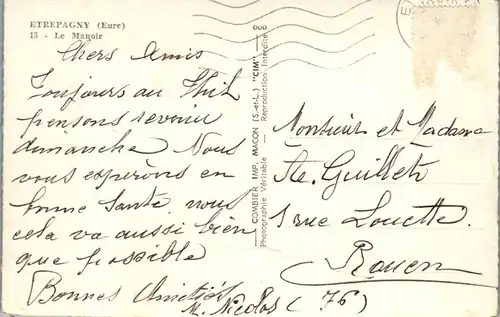 ETREPAGNY (Eure)
15 - Le Manoir
Chers Amis
Toujours au Thil
pensons revenir
dimanche Nous
vous espérons en
bonne santé nous
cela va aussi bien
que possible
Bonnes Amitiés
M. Nicolas
COMBIER IMP. MACON (S.-et-L.) "CIM"
Photographie Véritable - Reproduction Interdite
Monsieur et Madame
Guilleti
1 rue Louette
Rouen
(76)